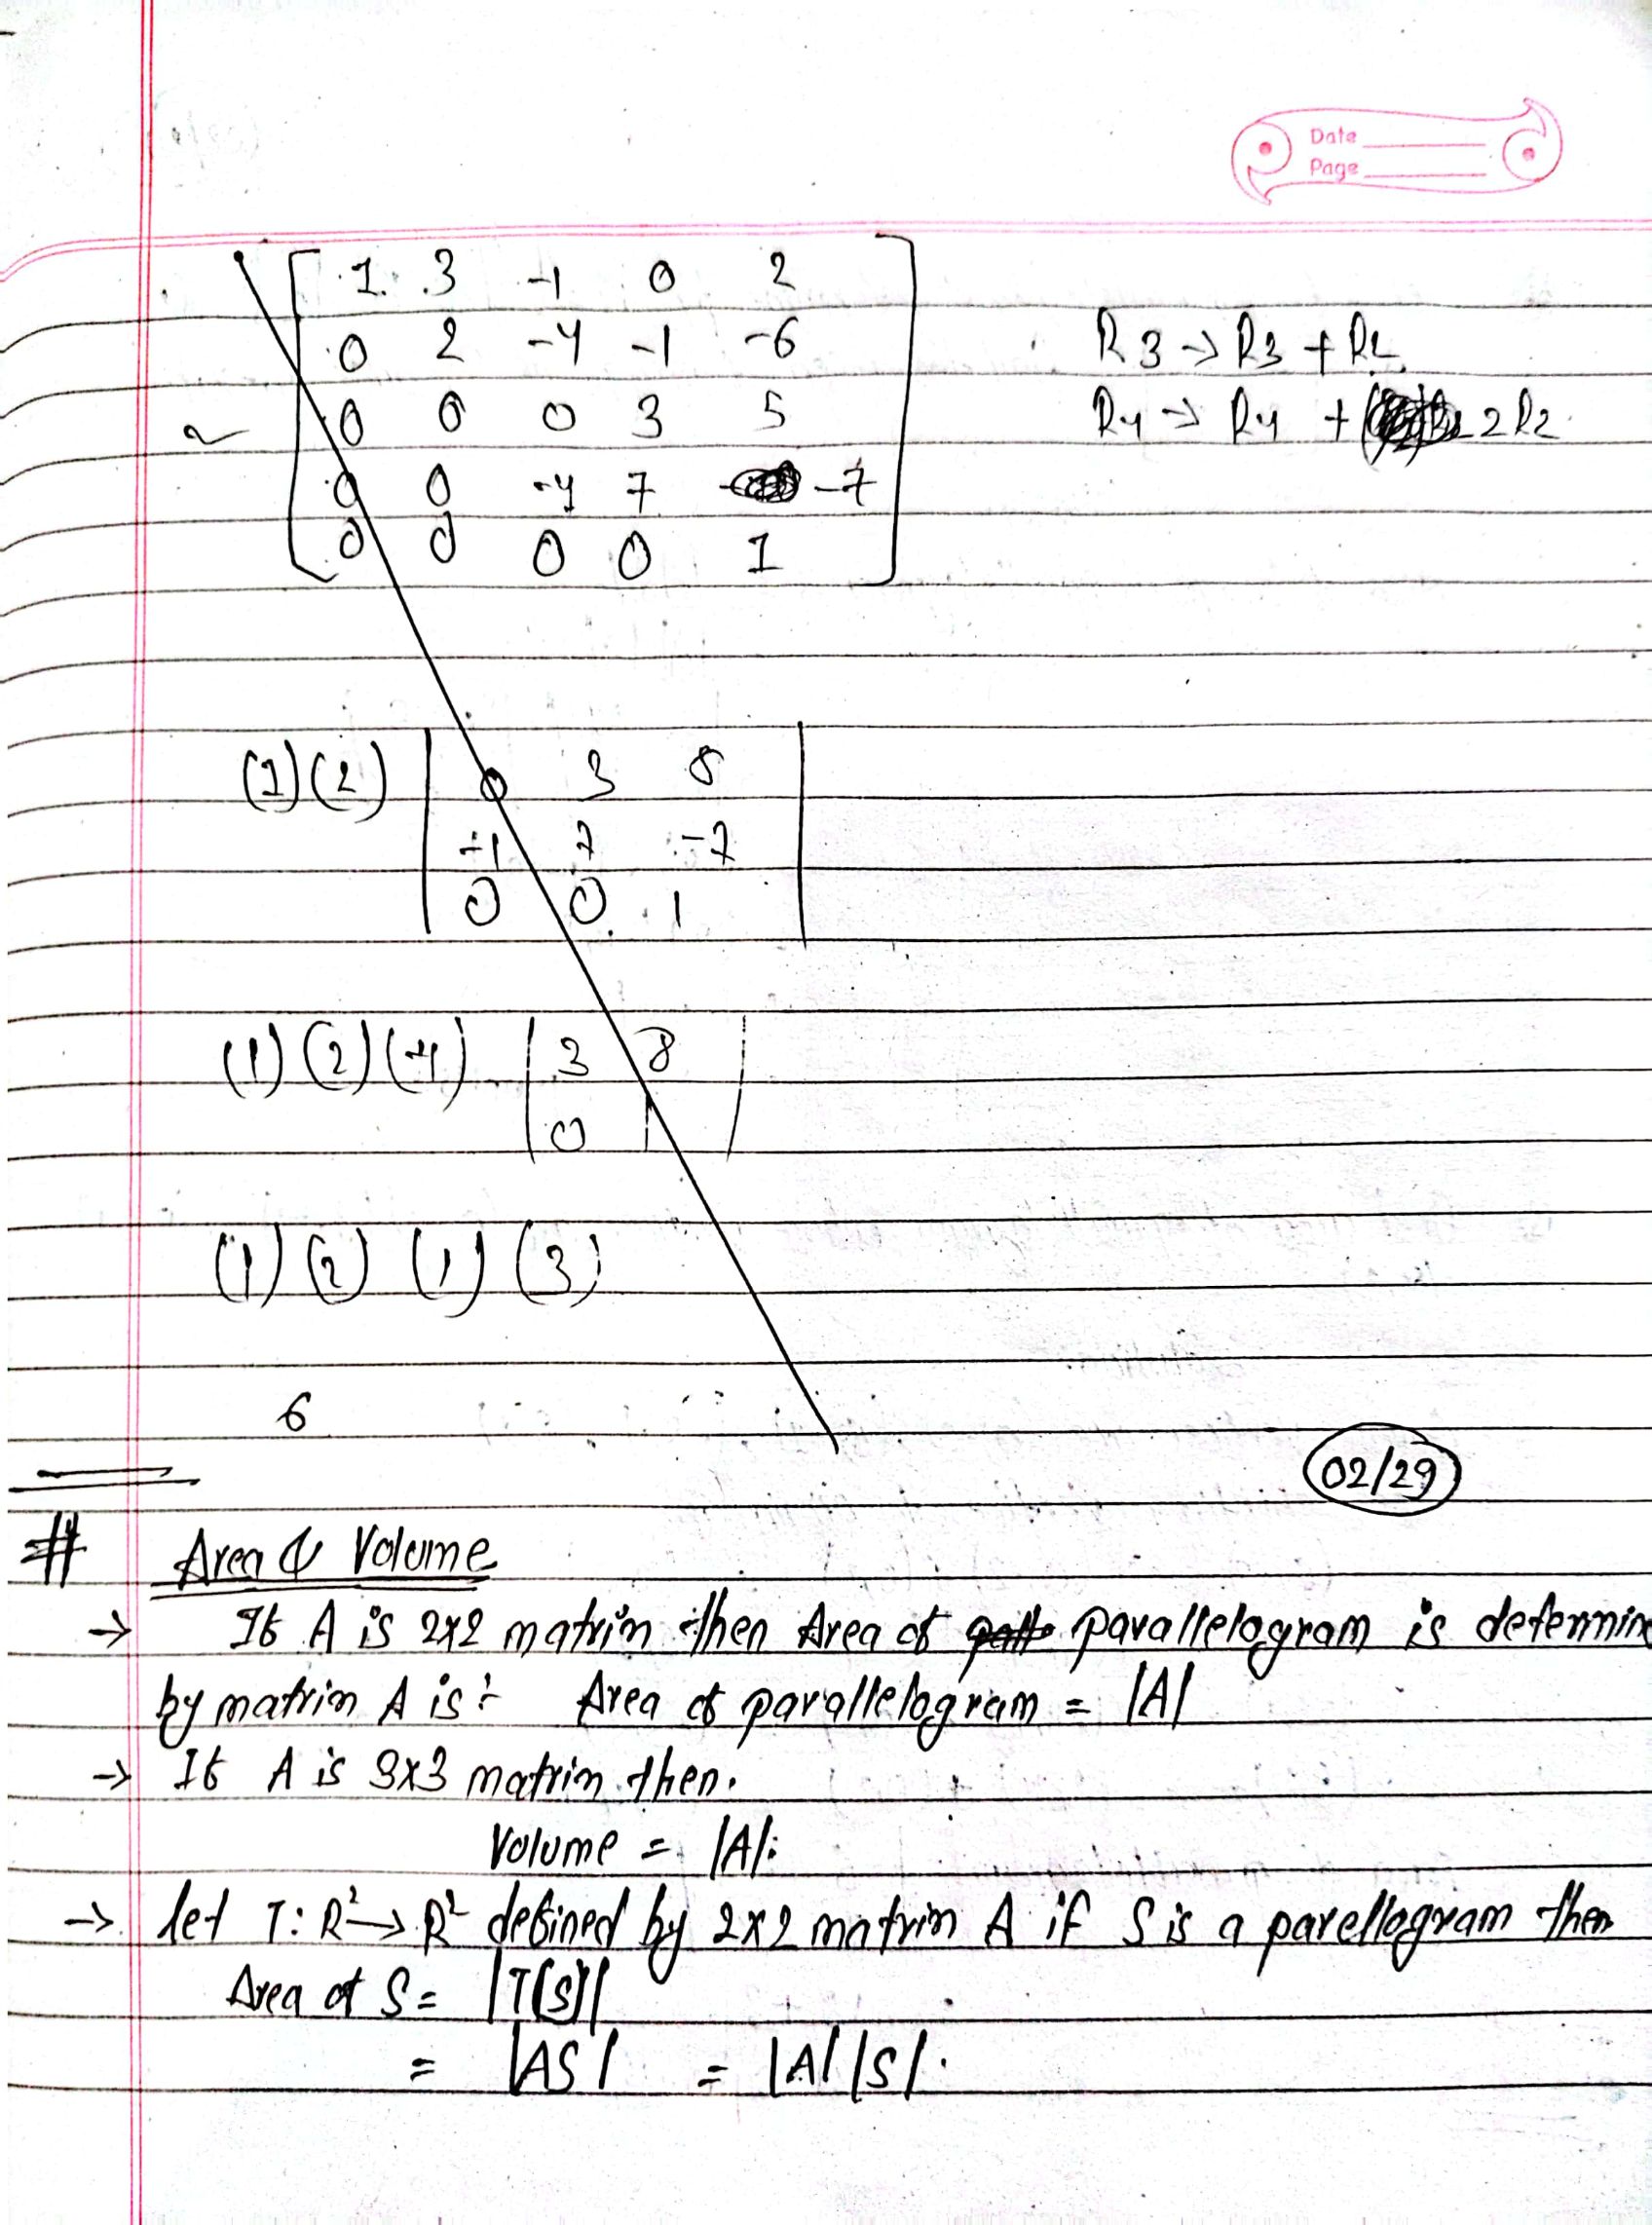 Date
Page
1 3 -1 0 2
0 2 -4 -1 -6
R3 → R3 + R2
~ 0 0 0 3 5
R4 → R4 + 2R2
0 0 -4 7 -7
0 0 0 0 1
(1)(2) | 0 3 8 |
-1 7 -7
0 0 1
(1) (2) (-1) | 3 8 |
0 1
(1) (2) (1) (3)
6
02/29
# Area & Volume
→ If A is 2x2 matrix then Area of parallelogram is determin
by matrix A is :- Area of parallelogram = |A|
→ If A is 3x3 matrix then.
Volume = |A|:
→ let T: R² → R² defined by 2x2 matrix A if S is a parellogram then
Area of S = |T(S)|
= |AS| = |A| |S|.